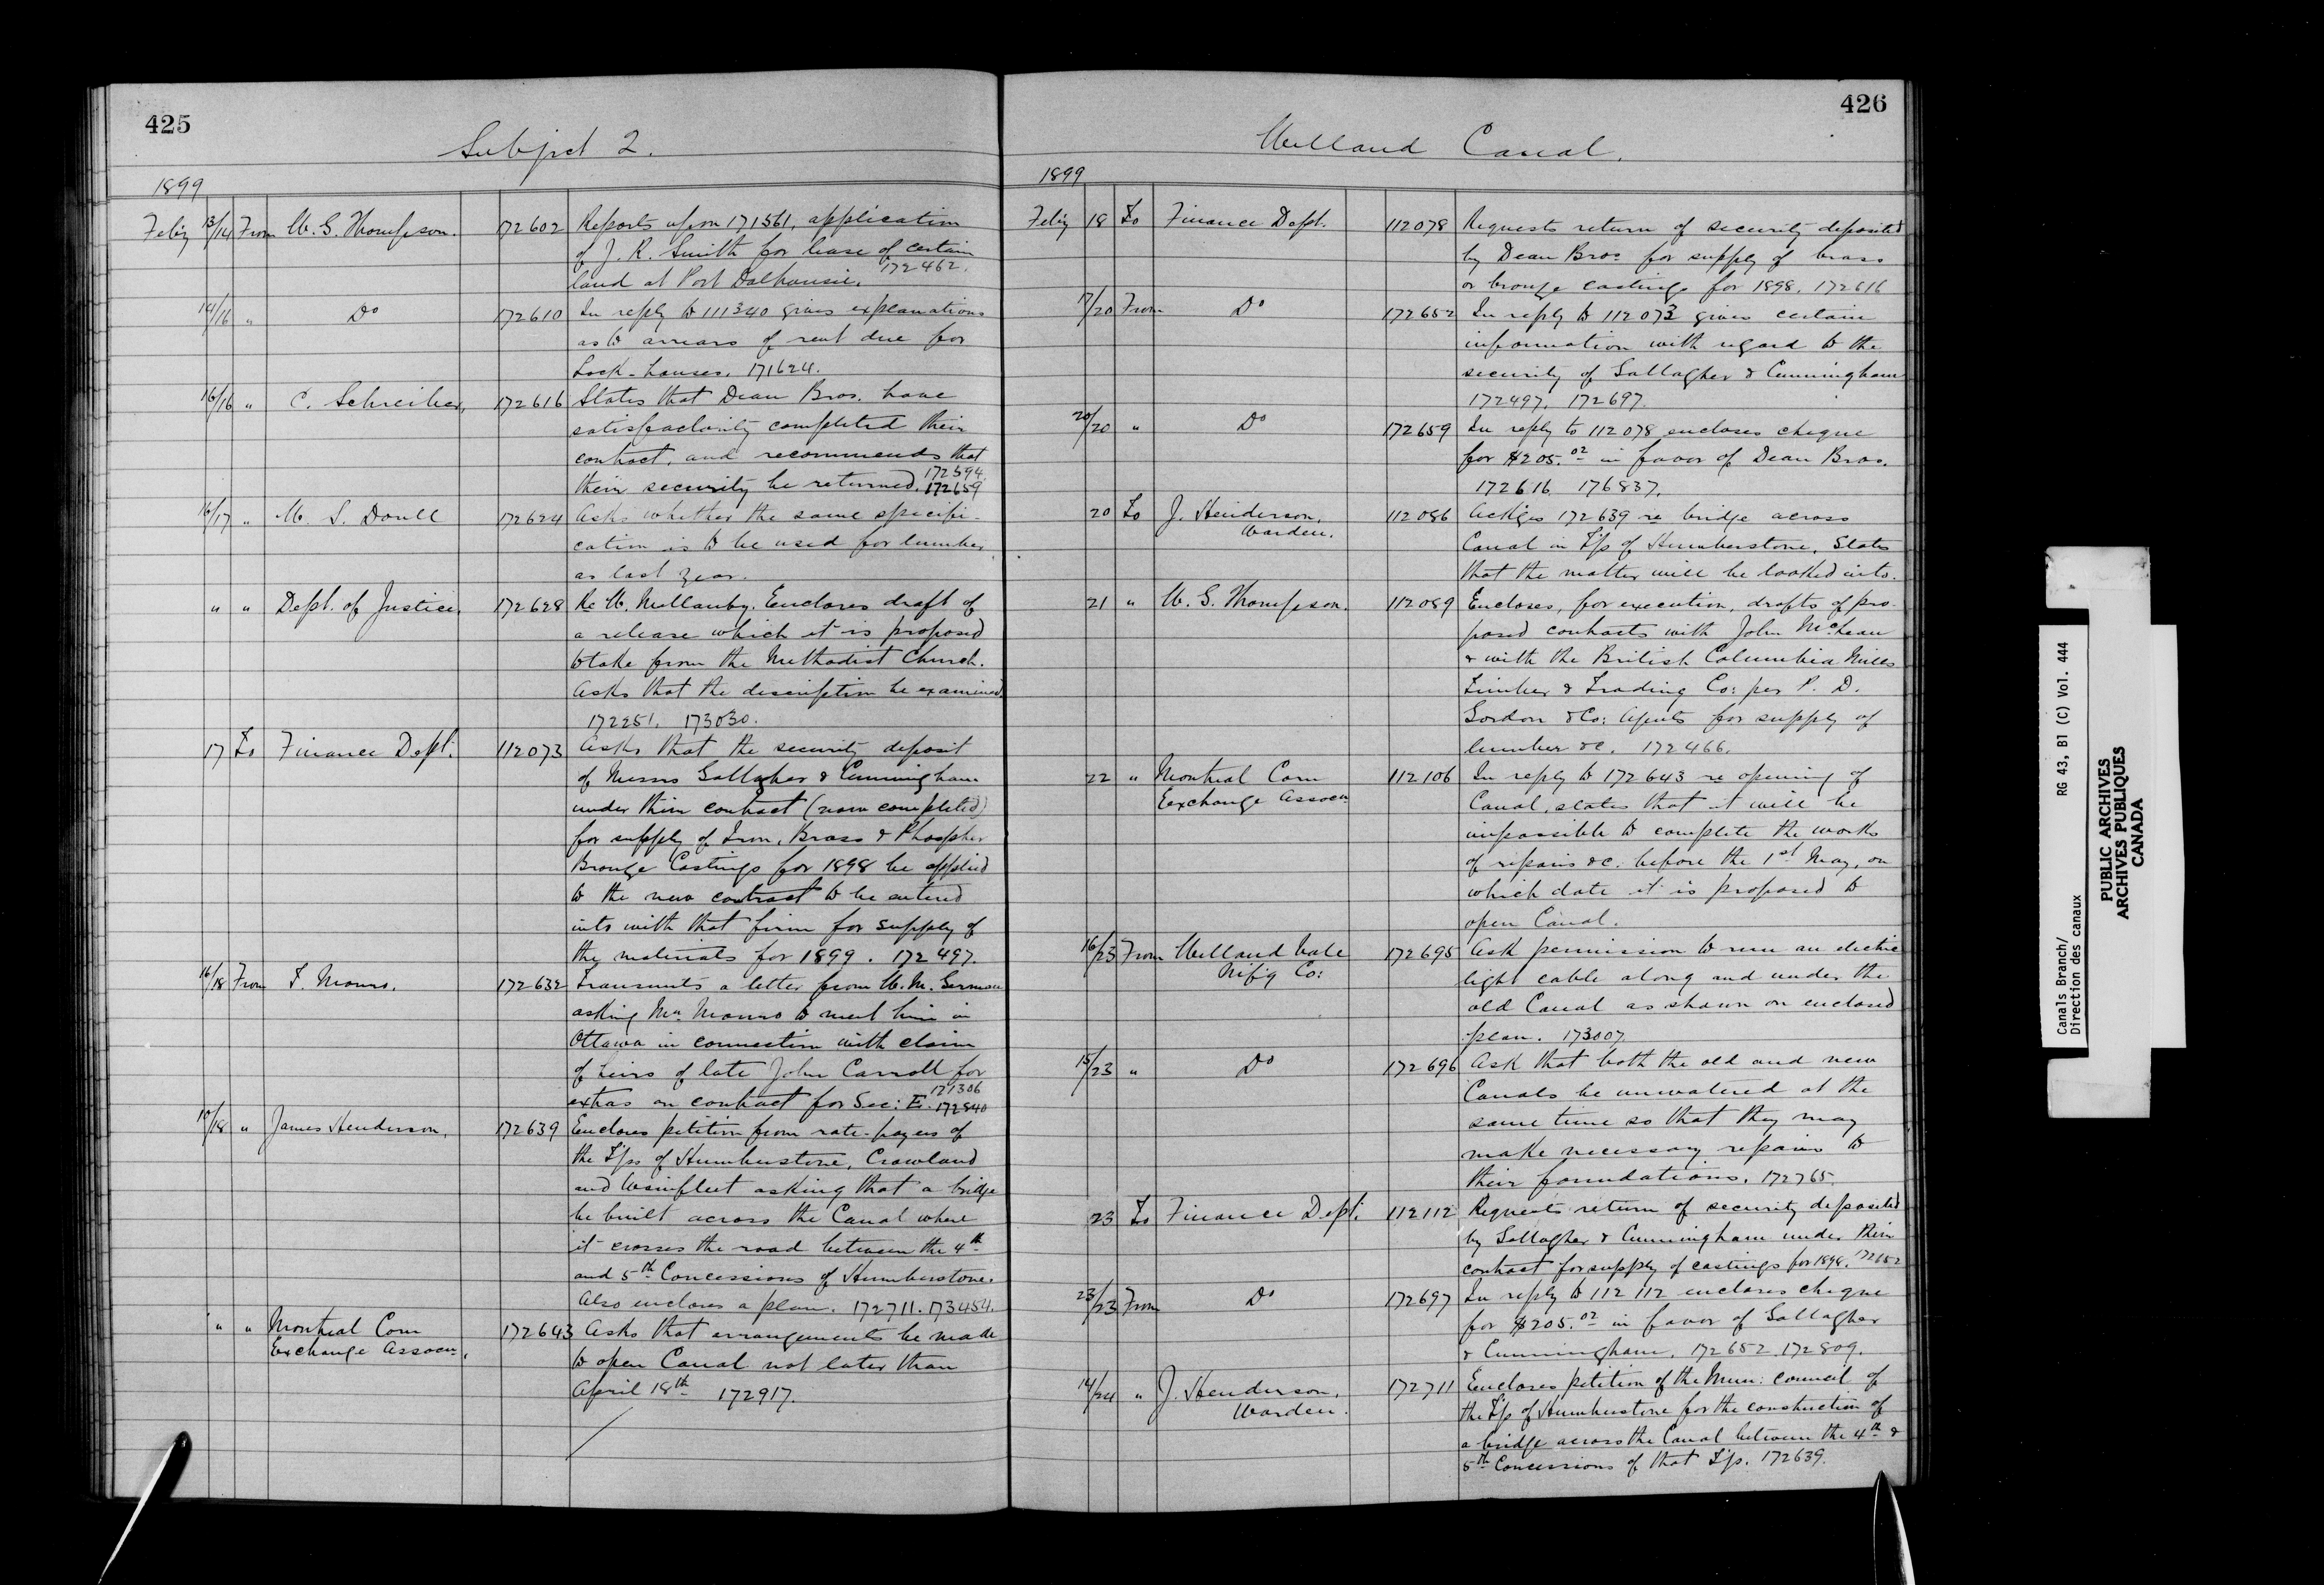 425
Subject 2.
1899
Feby 13/14 From W. G. Thompson. 172602 Reports upon 171561, application
of J. R. Smith for lease of certain
land at Port Dalhousie. 172462.
14/16 " Do 172610 In reply to 111340 gives explanations
as to arrears of rent due for
Lock-houses. 171624.
16/16 " C. Schreiber, 172616 States that Dean Bros. have
satisfactorily completed their
contract, and recommends that
their security be returned. 172594. 172659
16/17 " M. S. Doull 172624 Asks whether the same specifi-
cation is to be used for lumber
as last year.
" " Dept. of Justice, 172628 Re W. Mellanby. Encloses draft of
a release which it is proposed
to take from the Methodist Church.
Asks that the description be examined
172251. 173030.
17 To Finance Dept. 112073 Asks that the security deposit
of Messrs Gallagher & Cunningham
under their contract (now completed)
for supply of Iron, Brass & Phosphor
Bronze Castings for 1898 be applied
to the new contract to be entered
into with that firm for supply of
the materials for 1899. 172497.
16/18 From T. Monro. 172632 Transmits a letter from W. M. German
asking Mr. Monro to meet him in
Ottawa in connection with claim
of heirs of late John Carroll for
extras on contract for Sec: E. 171306 172840
10/18 " James Henderson, 172639 Encloses petition from rate-payers of
the T'ps of Humberstone, Crowland
and Wainfleet asking that a bridge
be built across the Canal where
it crosses the road between the 4th
and 5th Concessions of Humberstone.
Also encloses a plan. 172711. 173454.
" " Montreal Corn 172643 Asks that arrangements be made
Exchange Assocn. to open Canal not later than
April 18th 172917.
426
Welland Canal.
1899
Feby 18 To Finance Dept. 112078 Requests return of security deposited
by Dean Bros. for supply of brass
or bronze castings for 1898. 172616
17/20 From Do 172652 In reply to 112073 gives certain
information with regard to the
security of Gallagher & Cunningham
172497. 172697.
20/20 " Do 172659 In reply to 112078 encloses cheque
for $205.02 in favor of Dean Bros.
172616. 176837.
20 To J. Henderson, 112086 Ackges 172639 re bridge across
Warden. Canal in T'p of Humberstone. States
that the matter will be looked into.
21 " W. G. Thompson. 112089 Encloses, for execution, drafts of pro-
posed contracts with John McLean
& with the British Columbia Mills
Timber & Trading Co: per P. D.
Gordon & Co: Agents for supply of
lumber &c. 172466.
22 " Montreal Corn 112106 In reply to 172643 re opening of
Exchange Assocn Canal, states that it will be
impossible to complete the works
of repairs &c. before the 1st May, on
which date it is proposed to
open Canal.
16/23 From Welland Vale 172695 Ask permission to run an electric
M'f'g Co: light cable along and under the
old Canal as shown on enclosed
plan. 173007
15/23 " Do 172696 Ask that both the old and new
Canals be unwatered at the
same time so that they may
make necessary repairs to
their foundations. 172765.
23 To Finance Dept. 112112 Requests return of security deposited
by Gallagher & Cunningham under their
contract for supply of castings for 1898. 172652
23/23 From Do 172697 In reply to 112112 encloses cheque
for $205.02 in favor of Gallagher
& Cunningham. 172652. 172809.
14/24 " J. Henderson, 172711 Encloses petition of the Mun: council of
Warden. the T'p of Humberstone for the construction of
a bridge across the Canal between the 4th &
5th Concessions of that T'p. 172639.
Canals Branch/ RG 43, B1 (C) Vol. 444
Direction des canaux
PUBLIC ARCHIVES
ARCHIVES PUBLIQUES
CANADA